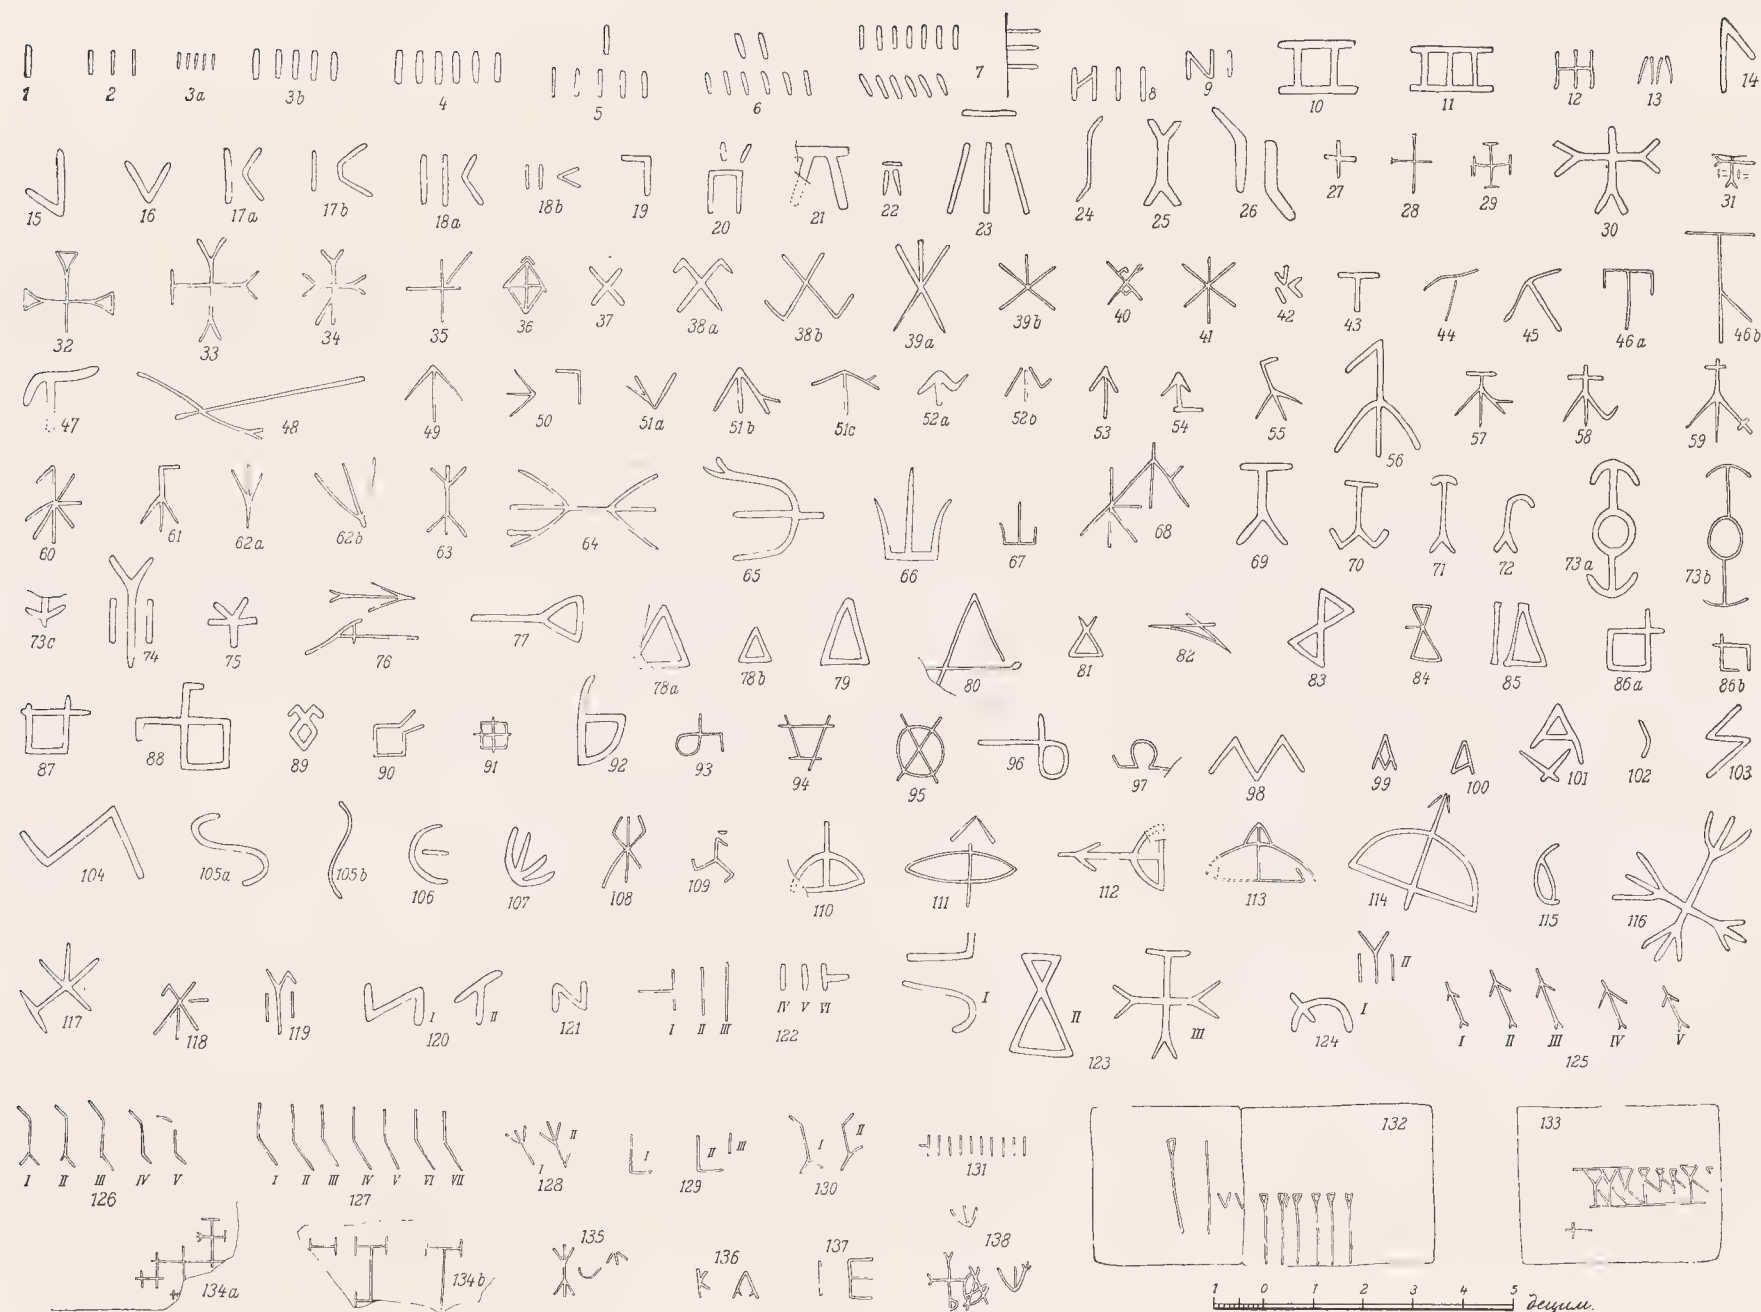 1 2 3a 3b 4 5 6 7 8 9 10 11 12 13 14
15 16 17a 17b 18a 18b 19 20 21 22 23 24 25 26 27 28 29 30 31
32 33 34 35 36 37 38a 38b 39a 39b 40 41 42 43 44 45 46a 46b
47 48 49 50 51a 51b 51c 52a 52b 53 54 55 56 57 58 59
60 61 62a 62b 63 64 65 66 67 68 69 70 71 72 73a 73b
73c 74 75 76 77 78a 78b 79 80 81 82 83 84 85 86a 86b
87 88 89 90 91 92 93 94 95 96 97 98 99 100 101 102 103
104 105a 105b 106 107 108 109 110 111 112 113 114 115 116
117 118 119 I 120 II 121 I II III 122 IV V VI I II 123 III 124 I II I II III IV V 125
I II III IV V 126 I II III IV V VI VII 127 I 128 II I 129 II III I 130 II 131 132 133
134a 134b 135 136 137 138
1 0 1 2 3 4 5 децим.